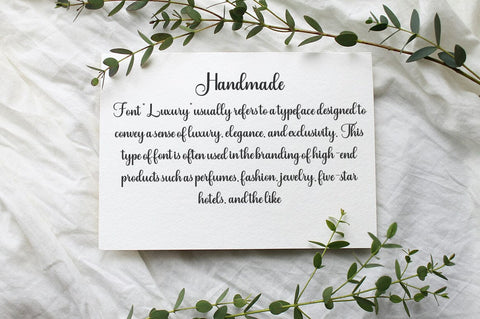 Handmade
Font 'Luxury' usually refers to a typeface designed to
convey a sense of luxury, elegance, and exclusivity. This
type of font is often used in the branding of high-end
products such as perfumes, fashion, jewelry, five-star
hotels, and the like